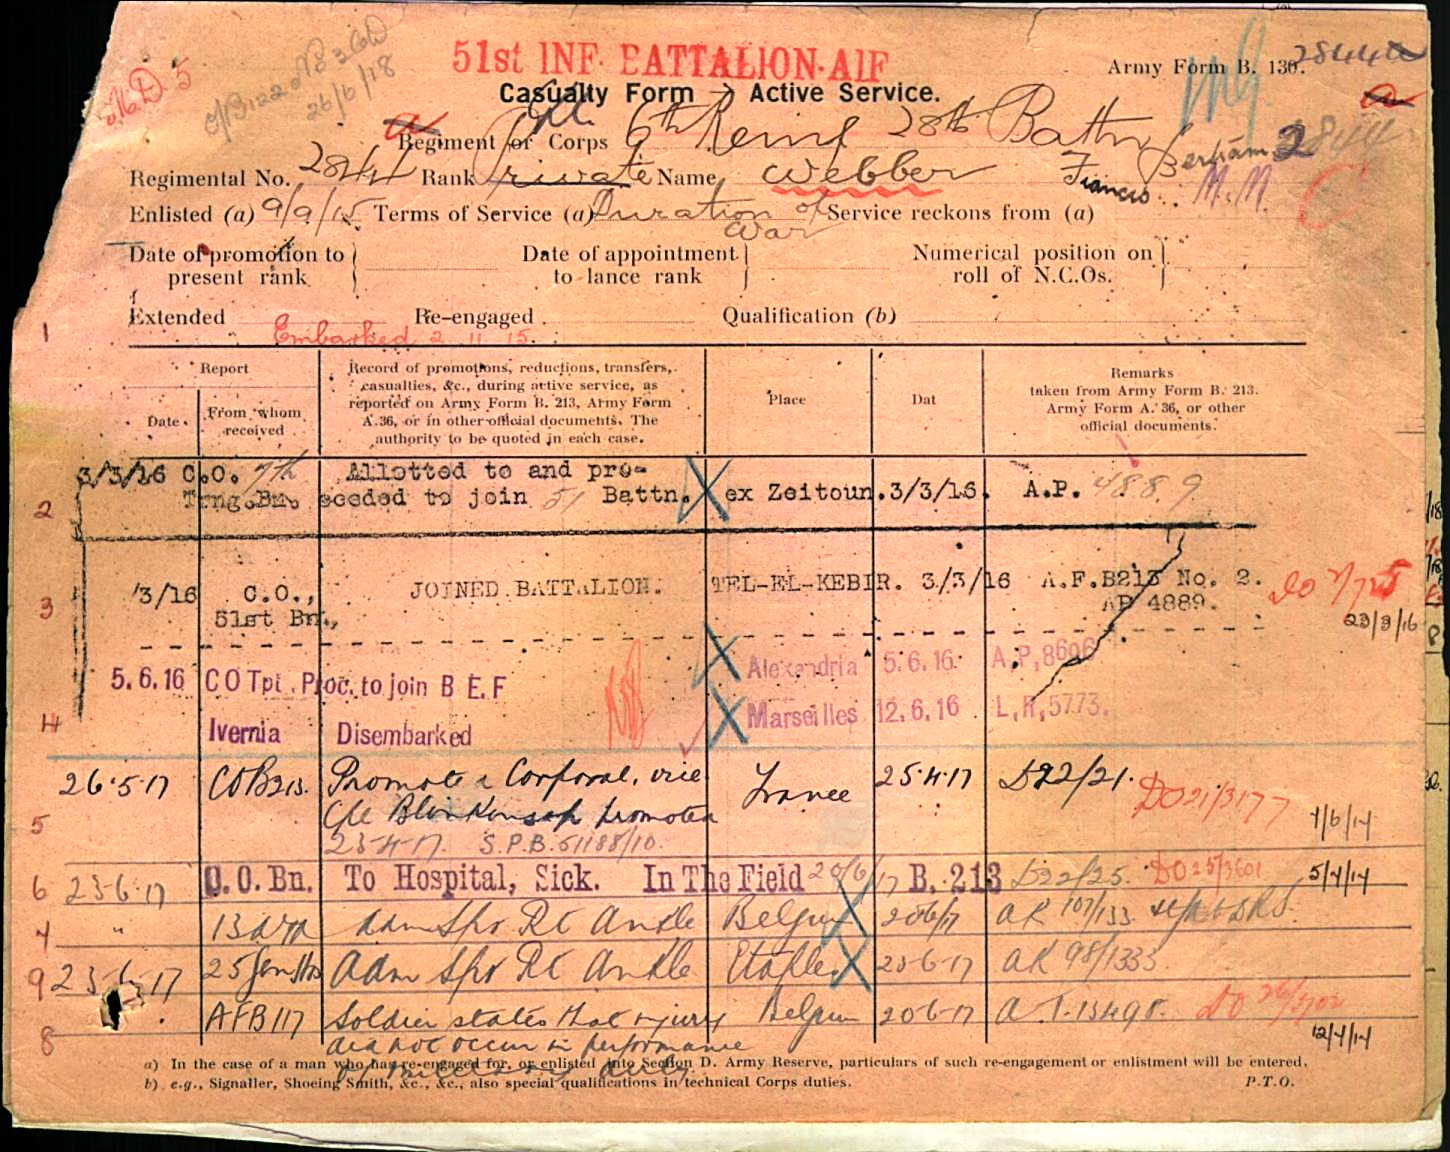 51st INF. BATTALION. AIF
Army Form B. 130. 2844
Casualty Form - Active Service.
MD 5
26/6/18
Regiment or Corps 6th Reinf 28th Battn
Regimental No. 2844 Rank Private Name Webber Francis Bertram M.M.
Enlisted (a) 9/9/15 Terms of Service (a) Duration of War Service reckons from (a)
Date of promotion to present rank
Date of appointment to lance rank
Numerical position on roll of N.C.Os.
Extended Re-engaged Qualification (b)
Embarked 2 11 15.
Report
Date. From whom received
Record of promotions, reductions, transfers, casualties, &c., during active service, as reported on Army Form B. 213, Army Form A.36, or in other official documents. The authority to be quoted in each case.
Place
Dat
Remarks taken from Army Form B. 213. Army Form A. 36, or other official documents.
1
3/3/16 C.O. 7th Allotted to and pro-
2 Trng.Bn. ceeded to join 51 Battn. ex Zeitoun. 3/3/16. A.P. 4889
3 /3/16 C.O., JOINED BATTALION. TEL-EL-KEBIR. 3/3/16 A.F.B213 No. 2.
51st Bn., AP 4889. 23/3/16
5.6.16 C O Tpt. Proc. to join B E.F Alexandria 5.6.16. A.P. 8696
4 Ivernia Disembarked Marseilles 12.6.16 L.R, 5773.
26.5.17 CO B213. Promoted Corporal. vice France 25.4.17 D22/21. DO21/3177
5 Cpl promoted
23-4-17. S.P.B. 51188/10.
6 23.6.17 C.O.Bn. To Hospital, Sick. In The Field 20/6/17 B. 213 D22/25. DO25/3601
" Adm Spr Rt Ankle Belgium 20/6/17 AR 107/133
9 23-6-17 25 Gen Hos Adm Spr Rt Ankle Etaples 23-6-17 AR 98/1333
AFB 117 Soldier states that injury Belgium 20-6-17
8 did not occur in performance
of military duty.
a) In the case of a man who has re-engaged for, or enlisted into Section D. Army Reserve, particulars of such re-engagement or enlistment will be entered.
b) e.g., Signaller, Shoeing Smith, &c., &c., also special qualifications in technical Corps duties. P.T.O.